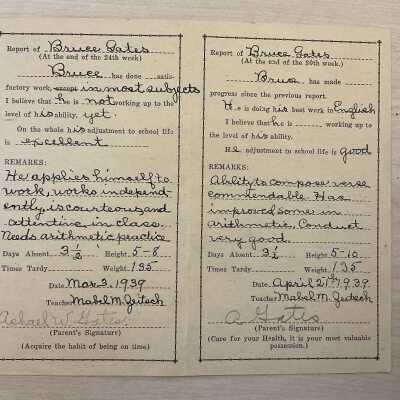 Report of Bruce Gates
(At the end of the 24th week.)
Bruce has done satis-
factory work, except in most subjects
I believe that he is not working up to the
level of his ability. yet.
On the whole his adjustment to school life
is excellent
REMARKS:
He applies himself to
work, works independ-
ently, is courteous and
attentive in class.
Needs arithmetic practice
Days Absent 3½ Height 5-8
Times Tardy Weight 135
Date Mar. 3, 1939
Teacher Mabel M.
W. Gates
(Parent's Signature)
(Acquire the habit of being on time)
Report of Bruce Gates
(At the end of the 30th week.)
Bruce has made
progress since the previous report.
He is doing his best work in English
I believe that he is working up to
the level of his ability.
He adjustment to school life is good
REMARKS:
Ability to compose verse
commendable. Has
improved some in
arithmetic. Conduct
very good.
Days Absent 3½ Height 5-10
Times Tardy Weight 135
Date April 21st, 1939
Teacher Mabel M.
A Gates
(Parent's Signature)
(Care for your Health, it is your most valuable
possession.)